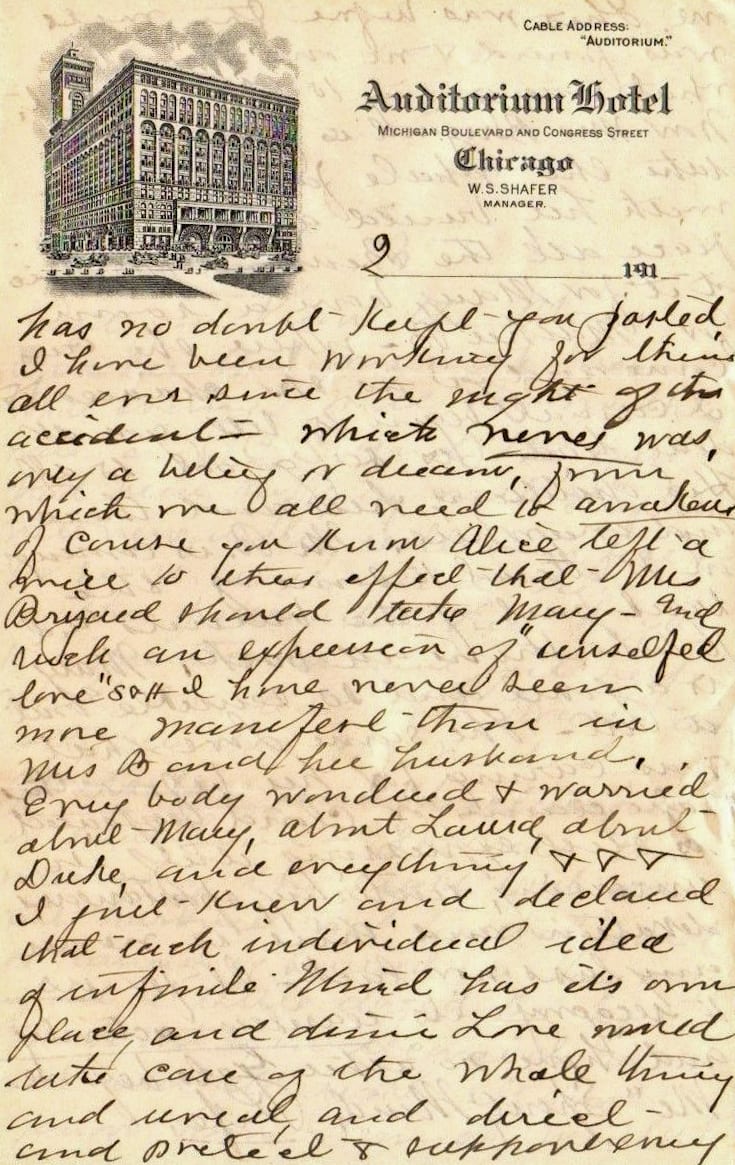 CABLE ADDRESS:
"AUDITORIUM."
Auditorium Hotel
MICHIGAN BOULEVARD AND CONGRESS STREET
Chicago
W.S. SHAFER
MANAGER.
2 191
has no doubt kept you posted,
I have been working for them
all ever since the night of the
accident – which never was,
only a belief or dream, from
which we all need to awaken
Of course you know Alice left a
to effect that Mrs
should take Mary – And
such an expression of "unselfed
love" I have never seen
more manifest than in
Mrs B and her husband.
Every body wondered & worried
about Mary, about Laura, about
Duke, and everything & & &
I just knew and declared
that each individual idea
of infinite Mind has it's own
place, and divine Love would
take care of the whole thing
and and direct
and protect & support every